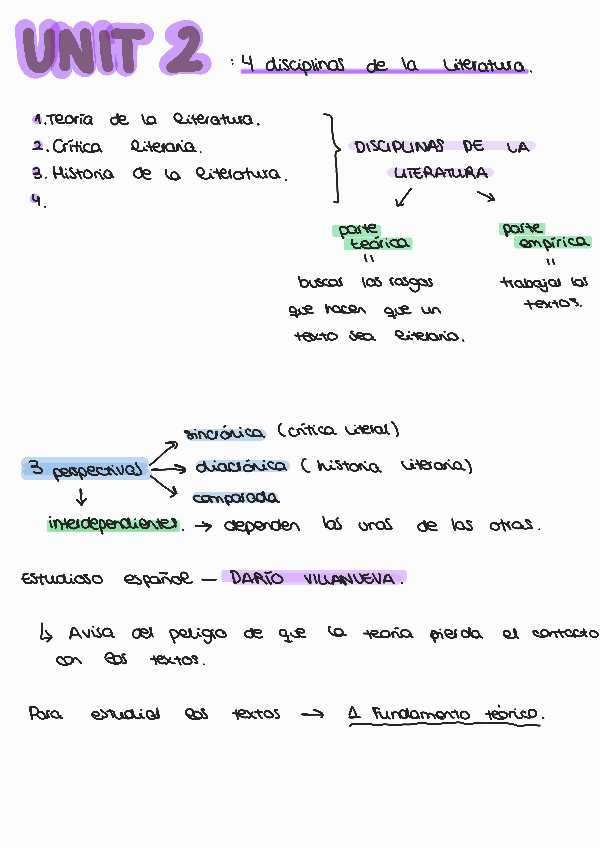 UNIT 2 : 4 disciplinas de la Literatura.
1. Teoría de la literatura.
2. Crítica literaria.
3. Historia de la literatura.
4.
DISCIPLINAS DE LA
LITERATURA
parte
teórica
"
buscar los rasgos
que hacen que un
texto sea literario.
parte
empírica
"
trabajar los
textos.
3 perspectivas
sincrónica (crítica literal)
diacrónica (historia literaria)
comparada
interdependientes. → dependen las unas de las otras.
Estudioso español — DARÍO VILLANUEVA.
↳ Avisa del peligro de que la teoría pierda el contacto
con los textos.
Para estudiar los textos → 1 Fundamento teórico.